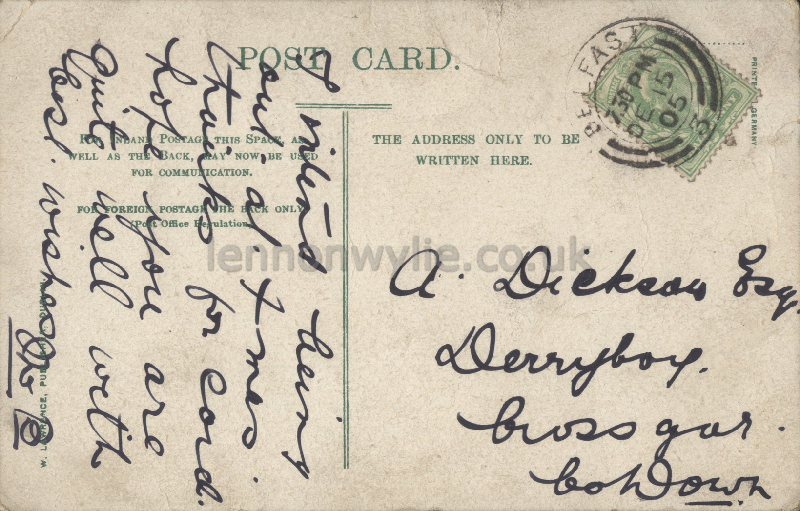 POST CARD.
FOR INLAND POSTAGE THIS SPACE, AS
WELL AS THE BACK, MAY NOW BE USED
FOR COMMUNICATION.
FOR FOREIGN POSTAGE THE BACK ONLY
(Post Office Regulation)
THE ADDRESS ONLY TO BE
WRITTEN HERE.
BELFAST
7.30 PM
DE 15
05
5
PRINTED GERMANY
being
out at Xmas.
Thanks for card.
hope you are
quite well with
best wishes
A. Dickson Esq.
Derryboy.
Crossgar.
Co Down
W. LAWRENCE, PUBLISHER, DUBLIN
lennonwylie.co.uk